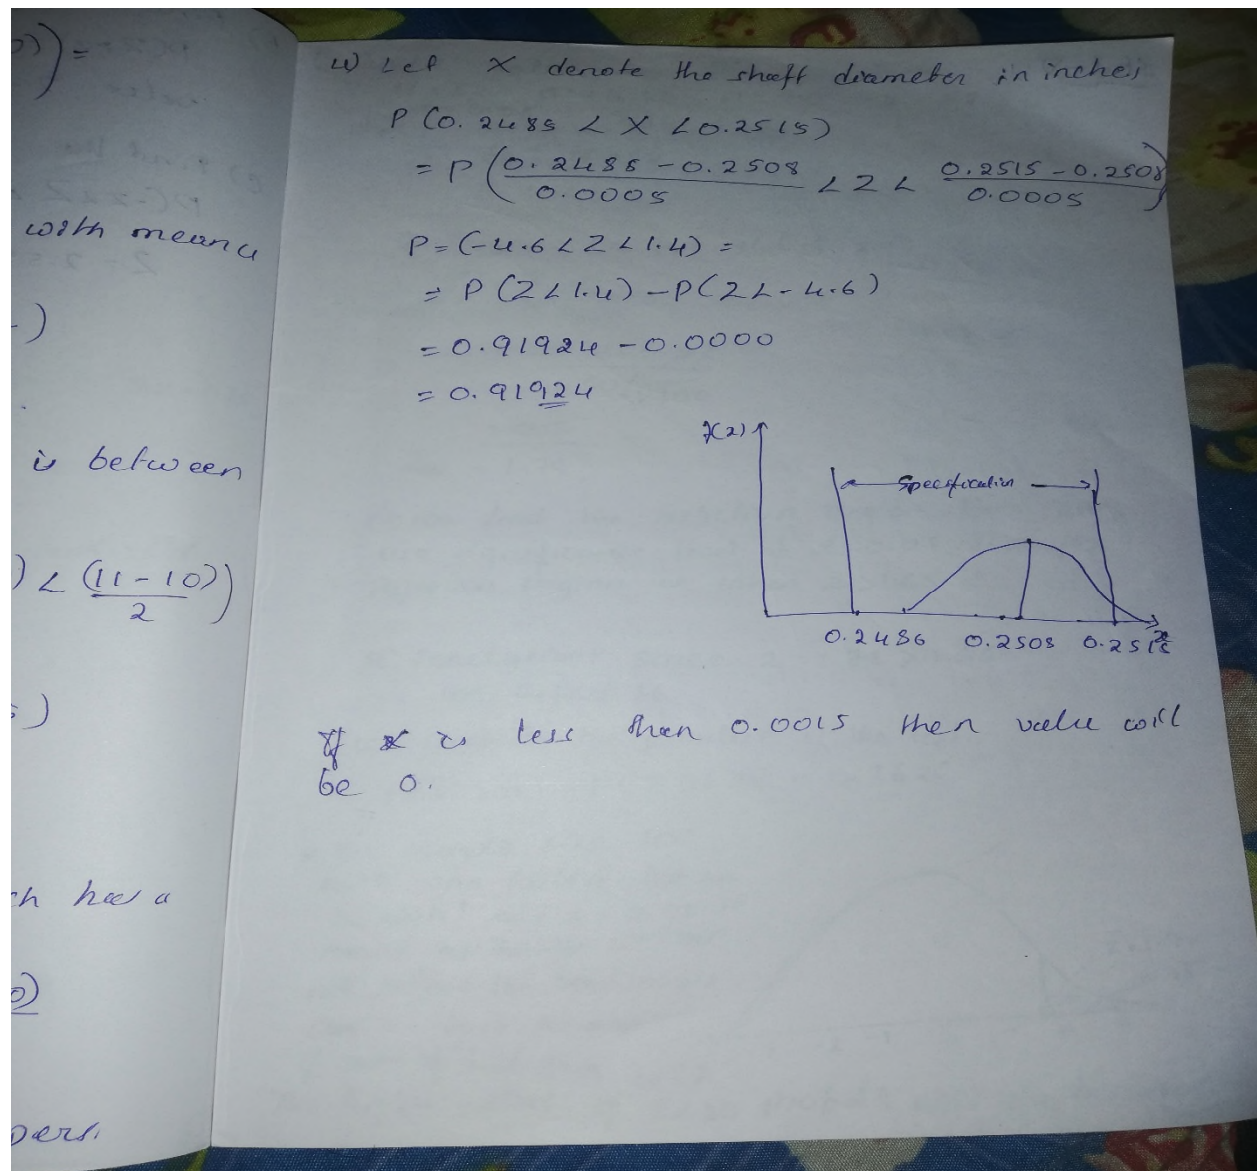 ))=
with mean u
-)
is between
) < (11-10))
2
s)
ch has a
0)
pers.
4) Let X denote the shaft diameter in inches
P(0.2485 < X < 0.2515)
= P(0.2485-0.2508 < Z < 0.2515-0.2508)
0.0005 0.0005
P=(-4.6<Z<1.4) =
= P(Z<1.4) -P(Z<-4.6)
= 0.91924 -0.0000
= 0.91924
f(x)
Specification
0.2486 0.2508 0.2515
x
If x is less than 0.0015 then value will
be 0.